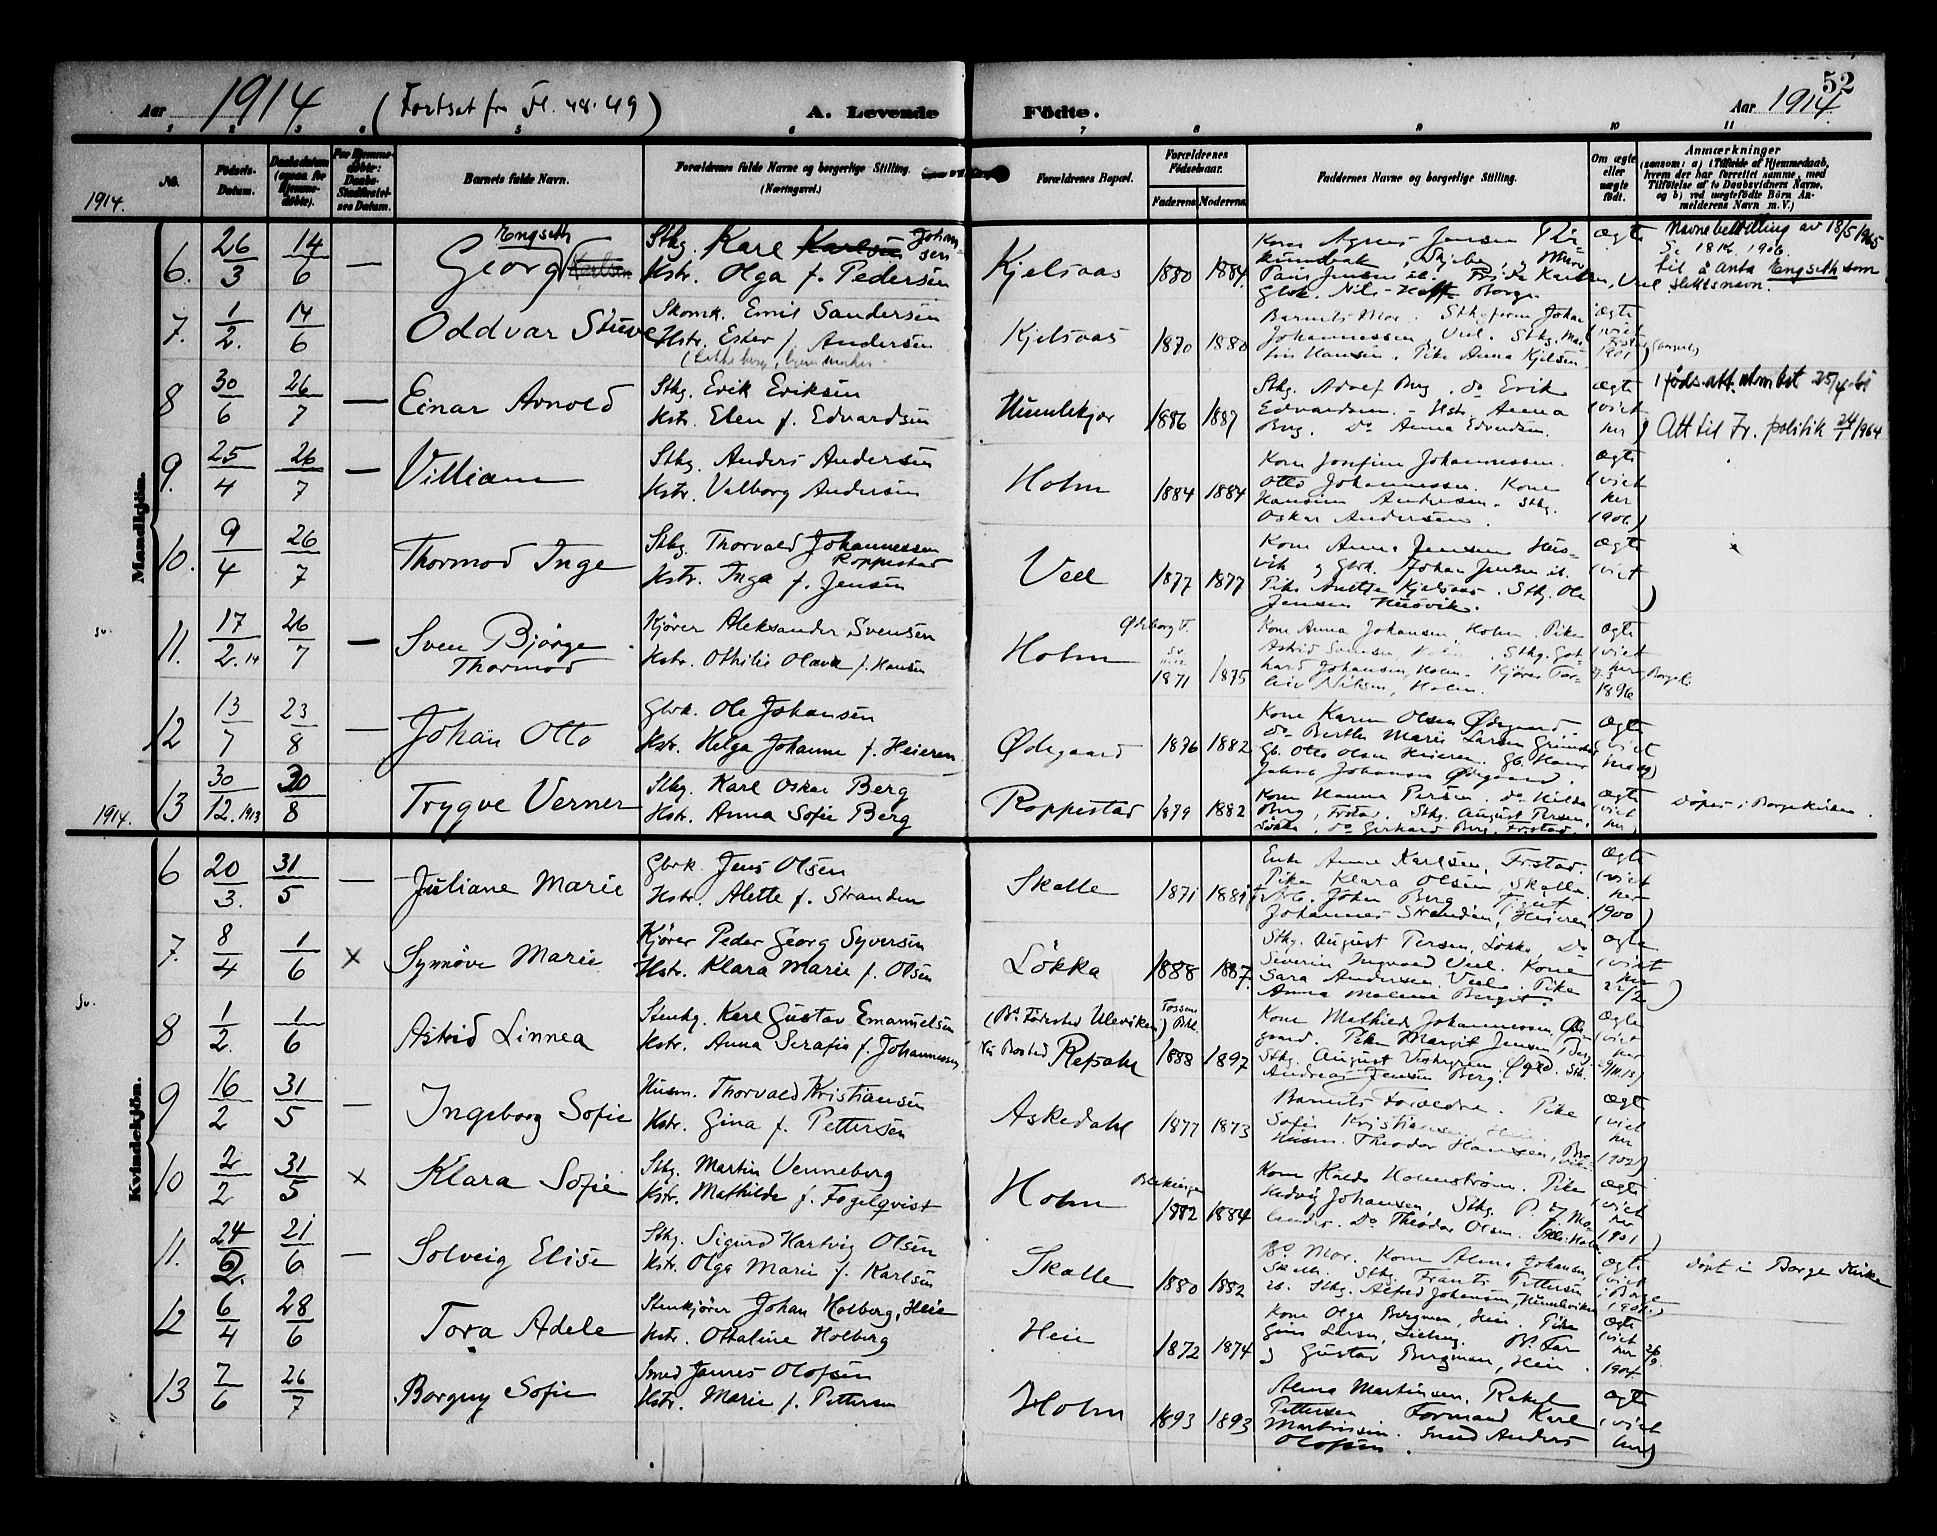 52
Aar 1914 (Fortsat fra Fl. 48-49) A. Levende Födte. Aar 1914
1 2 3 4 5 6 7 8 9 10 11
No.
Födsels-Datum.
Daabsdatum (ogsaa for Hjemme-döbte).
For Hjemme-döbte: Daabs-Stadfæstel-ses Datum.
Barnets fulde Navn.
Forældrenes fulde Navne og borgerlige Stilling. (Næringsvei.)
Forældrenes Bopæl.
Forældrenes Födselsaar.
Faderens Moderens
Faddernes Navne og borgerlige Stilling.
Om ægte eller uægte födt.
Anmærkninger
(saasom: a) i Tilfælde af Hjemmedaab, hvem der har forrettet samme, med Tilföielse af to Daabsvidners Navne, og b) ved uægtefödte Börn An-melderens Navn m. V.)
1914.
Mandkjön.
6. 26/3 14/6 — Georg Engseth Karlsen
Sthg. Karl Karlsen Johansen
Hstr. Olga f. Pedersen
Kjelsaas 1880 1884
Kone Agnes Jensen
ægte
Navnebevilling av 18/5 1965
til å anta Engseth som slektsnavn.
7. 1/2. 14/6 Oddvar Stuve
Skomk. Emil Sandersen
Hstr. Ester f. Andersen
Kjelsaas 1870 1880
Barnets Mor. Johannessen, Veel. Sthg. Martin Hansen. Pike Anna Kjelsen
ægte (viet 1901
8 30/6 26/7 — Einar Arnold
Sthg. Erik Eriksen
Hstr. Elen f. Edvardsen
Hunnekjær 1886 1887
Sthg. Adolf Berg. do Erik
Edvardsen. - Hstr. Anna
Berg. Do Anna Edvardsen.
ægte (viet her)
1 føds.att. utm.bet 25/4
Att til Fr. politik 24/1 1964
9. 25/4 26/7 — Villiam
Sthg. Anders Andersen
Hstr. Valborg Andersen
Holm 1884 1884
Kone Josefine Johannessen.
Otto Johannessen. Kone
Hansine Andersen. Sthg.
Oskar Andersen.
ægte (viet her 1906)
10. 9/4 26/7 Thormod Inge
Sthg. Thorvald Johannessen Roppestad
Hstr. Inga f. Jensen
Veel 1877 1877
Kone Anna Jensen Hus-
vik og Gbrk. Johan Jensen ib.
Pike Anette Kjelsaas. Sthg. Ole
Jensen Husvik.
ægte (viet )
sv.
11. 17/2. 14 26/7 — Sven Bjørge Thormod
Kjører Aleksander Svensen
Hstr. Othilie Olava f. Hansen
Holm 1871 1875
Kone Anna Johansen, Holm. Pike
Astrid Svensen Holm. Sthg. Got-
hard Johansen, Holm. Kjører Tor-
leiv Nilsen, Holm.
ægte (viet 1896
12 13/7 23/8 — Johan Otto
Gbrk. Ole Johansen
Hstr. Helga Johanne f. Heieren
Ødegaard 1876 1882
Kone Karen Olsen Ødegaard.
do Berthe Marie Larsen
Gb. Otto Olsen Heieren. Gb. Hans
Jakob Johansen Ødegaard.
ægte (viet
1914.
13 30/12. 1913 30/8 Trygve Verner
Sthg. Karl Oskar Berg
Hstr. Anna Sofie Berg
Roppestad 1879 1882
Kone Hanna Persen. do Hilda
Berg, Frstad. Sthg. August Persen,
Løkka, do Gerhard Berg, Frstad.
ægte (viet her)
Døpt i Borge kirken.
Kvindekjön.
6 20/3. 31/5 — Juliane Marie
Gbrk. Jens Olsen
Hstr. Alette f. Stranden
Skalle 1871 1881
Enke Anna Karlsen, Frstad.
Pike Klara Olsen, Skalle.
Johan Berg
Johannes Stranden, Heieren
ægte (viet her 1900)
7. 8/4 1/6 x Synøve Marie
Kjører Peder Georg Syversen
Hstr. Klara Marie f. Olsen
Løkka 1888 1887.
Sthg. August Persen, Løkka, Do
Severin Ingvard Veel. Kone
Sara Andersen Veel. Pike
Anna Malene Berget.
ægte (viet her )
Sv.
8 1/2. 1/6 Astrid Linnea
Stenhg. Karl Gustav Emanuelsen
Hstr. Anna Serafia f. Johannessen
(Bs Fødested Ulevikken)
Nu Bosted Repdahl 1888 1897
Kone Mathilde Johannessen, Øde-
gaard. Pike Margit Jensen, Berg
Sthg. August Øgd. Sth.
Andreas Jensen Berg.
ægte (viet her
9 16/2 31/5 — Ingeborg Sofie
Husm. Thorvald Kristiansen
Hstr. Gina f. Pettersen
Askedahl 1877 1873
Barnets Forældre. Pike
Sofie Kristiansen
Husm. Theodor Hansen,
ægte (viet her 1902)
10 2/2 31/5 x Klara Sofie
Sthg. Martin Venneberg
Hstr. Mathilde f. Fogelqvist
Holm Blekinge 1882 1884
Kone Hulda Holmstrøm. Pike
Hedvig Johansen, Sthg.
Do Theodor Olsen.
ægte (viet her 1901)
11. 24/2. 21/6 — Solveig Elise
Sthg. Sigurd Hartvig Olsen
Hstr. Olga Marie f. Karlsen
Skalle 1880 1882
Bs Mor. Kone Alma Johansen,
Skalle. Sthg. Frants Pettersen
ib. Sthg. Alfred Johansen,
ægte (viet i Borge
døpt i Borge Kirke
12 6/4 28/6 Tora Adele
Stenkjører Johan Holberg, Heie
Hstr. Ottaline Holberg
Heie 1872 1874
Kone Olga Bergman, Heie. Pike
Gina Larsen, Bs Far
og Gustav Bergman, Heie.
ægte (viet her 1904
13 7/6 26/7 Borgny Sofie
Smed James Olofsen
Hstr. Marie f. Pettersen
Holm 1893 1893
Alma Martinsen, Rakel
Pettersen Formand Karl
Martinsen. Smed Anders
Olofsen.
ægte (viet her)